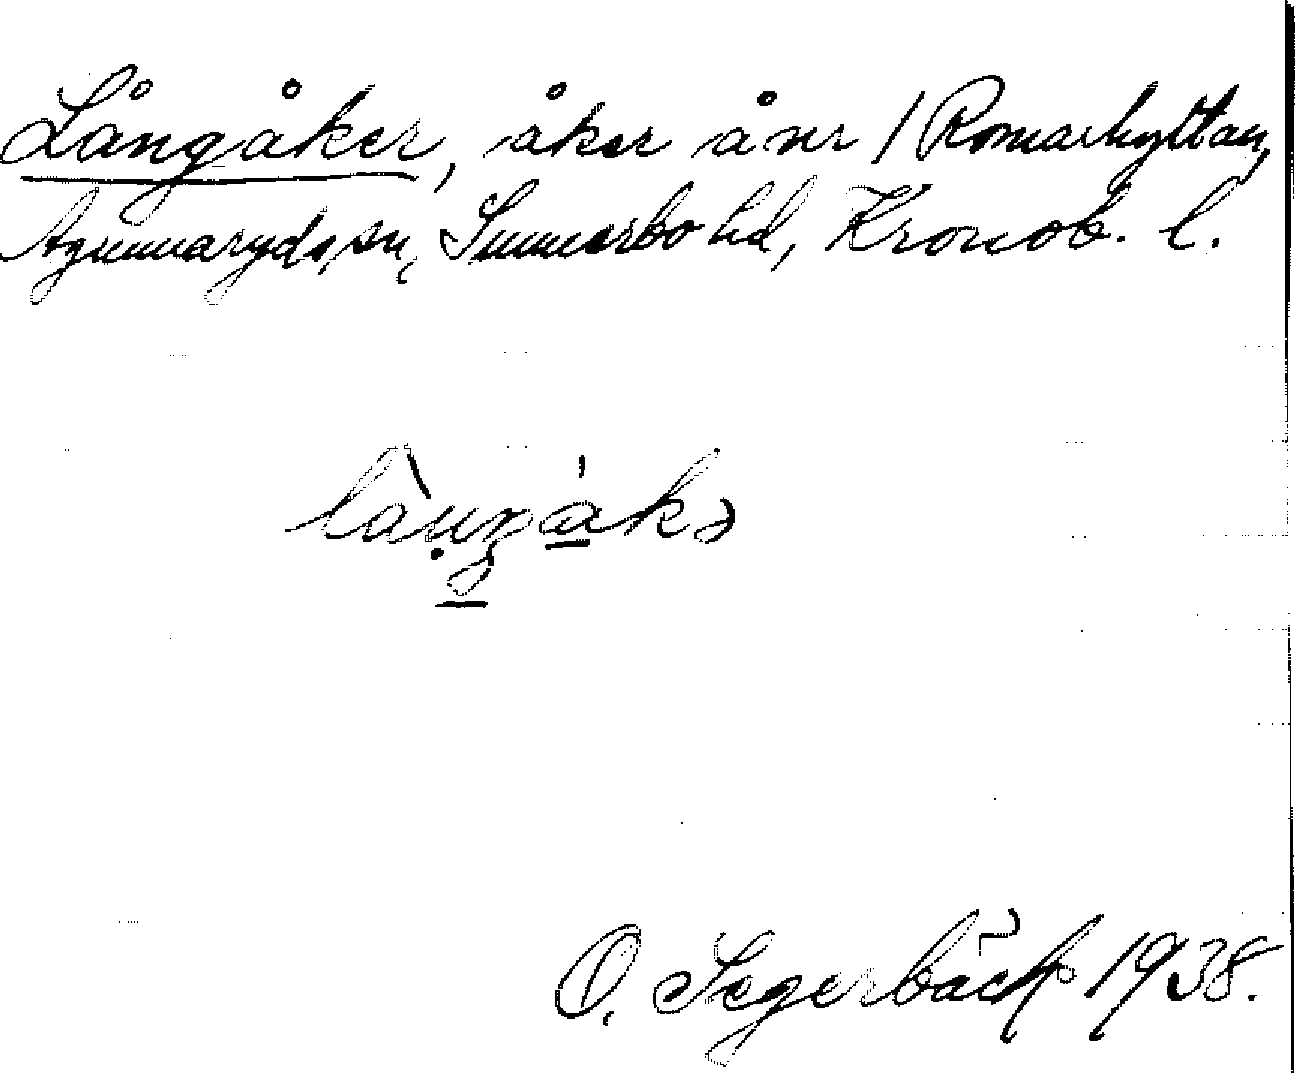 Långåker, åker å nr 1 Romarhyttan,
Agunnaryds sn, Sunnerbo hd, Kronob. l.
O. Segerbäck 1938.